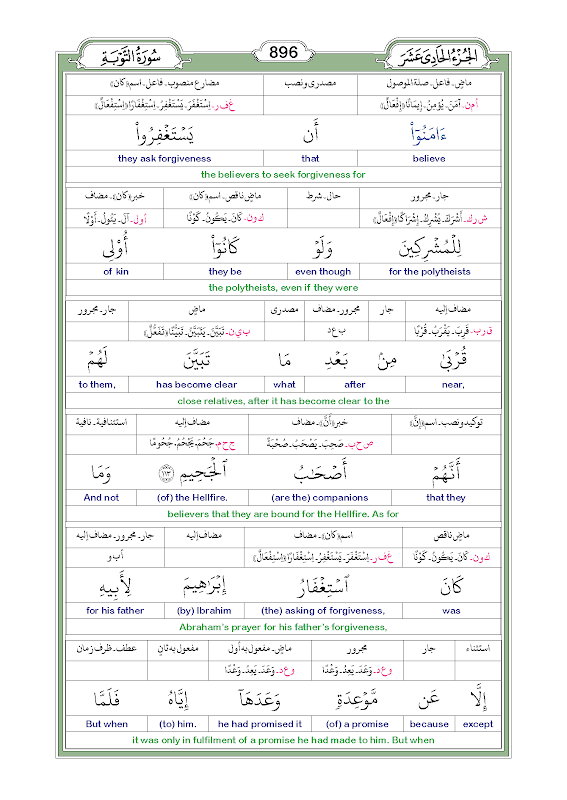 سُورَةُ التَّوْبَةِ 896 الجُزْءُ الحَادِي عَشَرَ
ماضٍ ـ فاعل ـ صلة الموصول مصدری و نصب مضارع منصوب ـ فاعل ـ اسم﴿كان﴾
أ م ن ـ آمَنَ ـ يُؤْمِنُ ـ إيمَانًا﴿إفْعَالٌ﴾ غ ف ر ـ إسْتَغْفَرَ ـ يَسْتَغْفِرُ ـ إسْتِغْفَارًا﴿إسْتِفْعَالٌ﴾
ءَامَنُوٓاْ أَن يَسْتَغْفِرُواْ
they ask forgiveness that believe
the believers to seek forgiveness for
جار ـ مجرور حال ـ شرط ماضٍ ناقص ـ اسم﴿كان﴾ خبر﴿كان﴾ ـ مضاف
ش ر ك ـ أَشْرَكَ ـ يُشْرِكُ ـ إشْرَاكًا﴿إفْعَالٌ﴾ ك و ن ـ كَانَ ـ يَكُونُ ـ كَوْنًا أ و ل ـ آلَ ـ يَئُولُ ـ أَوْلًا
لِلْمُشْرِكِينَ وَلَوْ كَانُوٓاْ أُوْلِي
of kin they be even though for the polytheists
the polytheists, even if they were
مضاف إليه جار مجرور ـ مضاف مصدری ماضٍ جار ـ مجرور
ق ر ب ـ قَرِبَ ـ يَقْرَبُ ـ قُرْبًا ب ع د ب ي ن ـ تَبَيَّنَ ـ يَتَبَيَّنُ ـ تَبَيُّنًا﴿تَفَعُّلٌ﴾
قُرْبَىٰ مِنۢ بَعْدِ مَا تَبَيَّنَ لَهُمْ
to them, has become clear what after near,
close relatives, after it has become clear to the
توكيد و نصب ـ اسم﴿إنَّ﴾ خبر﴿أنَّ﴾ ـ مضاف مضاف إليه استئنافية ـ نافية
ص ح ب ـ صَحِبَ ـ يَصْحَبُ ـ صُحْبَةً ج ح م ـ جَحُمَ ـ يَجْحُمُ ـ جُحُومًا
أَنَّهُمْ أَصْحَٰبُ ٱلْجَحِيمِ ١١٣ وَمَا
And not (of) the Hellfire. (are the) companions that they
believers that they are bound for the Hellfire. As for
ماضٍ ناقص اسم﴿كان﴾ ـ مضاف مضاف إليه جار ـ مجرور ـ مضاف إليه
ك و ن ـ كَانَ ـ يَكُونُ ـ كَوْنًا غ ف ر ـ إسْتَغْفَرَ ـ يَسْتَغْفِرُ ـ إسْتِغْفَارًا﴿إسْتِفْعَالٌ﴾ أ ب و
كَانَ ٱسْتِغْفَارُ إِبْرَٰهِيمَ لِأَبِيهِ
for his father (by) Ibrahim (the) asking of forgiveness, was
Abraham's prayer for his father's forgiveness,
استثناء جار مجرور ماضٍ ـ مفعول به أول مفعول به ثانٍ عطف ـ ظرف زمان
و ع د ـ وَعَدَ ـ يَعِدُ ـ وَعْدًا و ع د ـ وَعَدَ ـ يَعِدُ ـ وَعْدًا
إِلَّا عَن مَّوْعِدَةٍ وَعَدَهَآ إِيَّاهُ فَلَمَّا
But when (to) him. he had promised it (of) a promise because except
it was only in fulfilment of a promise he had made to him. But when